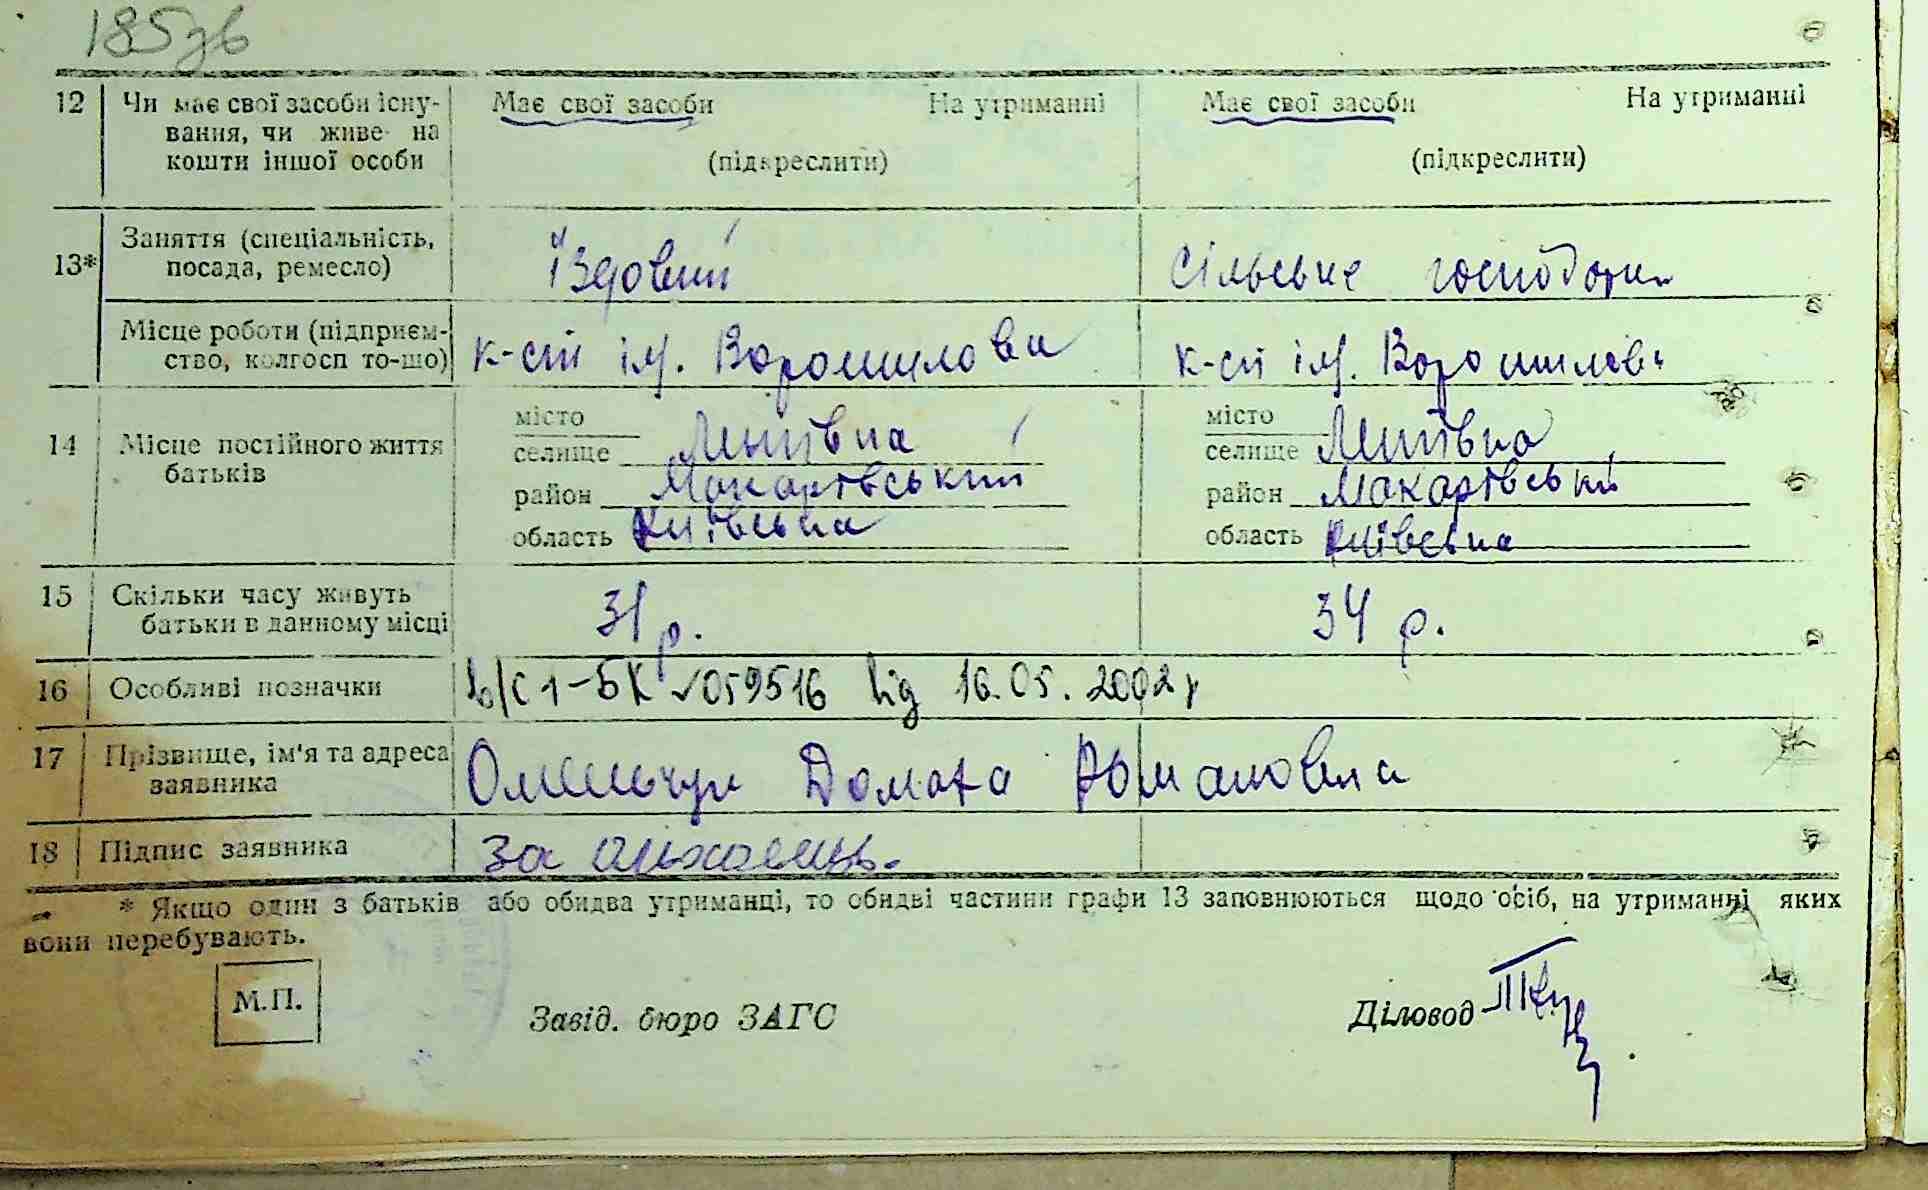 185зв
12 Чи має свої засоби існу- Має свої засоби На утриманні Має свої засоби На утриманні
вання, чи живе на
кошти іншої особи (підкреслити) (підкреслити)
13* Заняття (спеціальність, Їздовий Сільське
посада, ремесло)
Місце роботи (підприєм- к-сп ім. Ворошилова к-сп ім. Ворошилова
ство, колгосп то-що)
місто місто
14 Місце постійного життя селище Липівка селище Липівка
батьків район Макарівський район Макарівський
область Київська область Київська
15 Скільки часу живуть 31 р. 34 р.
батьки в данному місці
16 Особливі позначки 1-БК 059516 від 16.05.2002р
17 Прізвище, ім'я та адреса Омельчук Домаха Романовна
заявника
18 Підпис заявника за
* Якщо один з батьків або обидва утриманці, то обидві частини графи 13 заповнюються щодо осіб, на утриманні яких
вони перебувають.
М.П. Завід. бюро ЗАГС Діловод